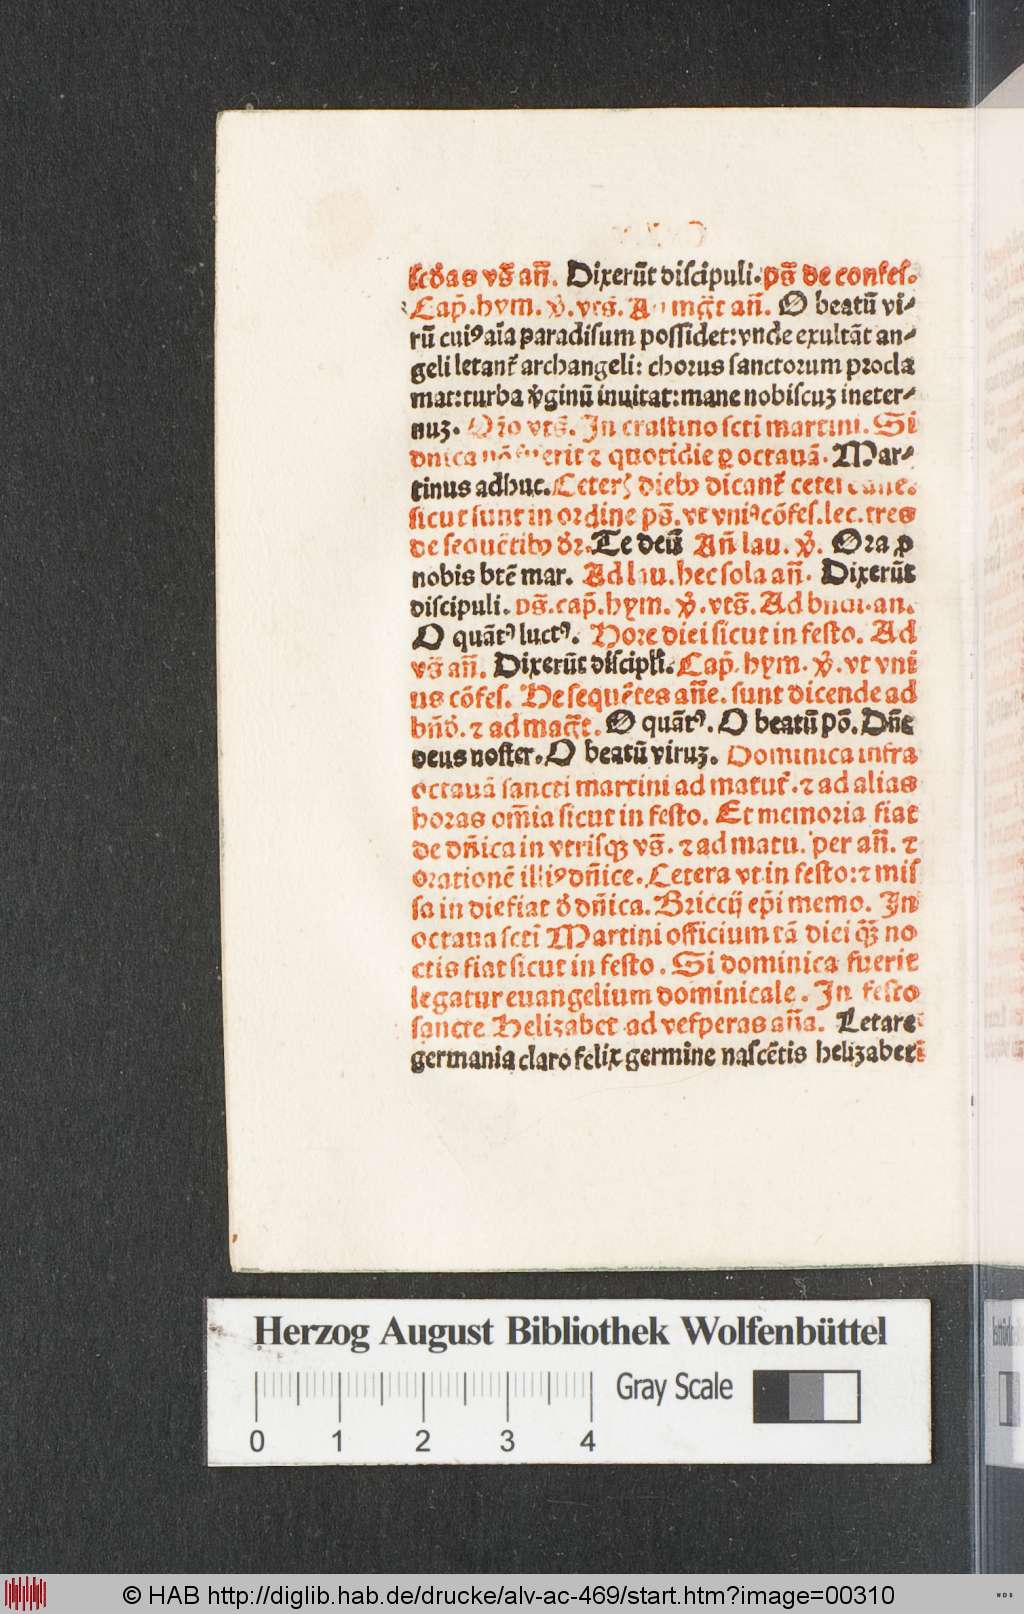 scd̄as vs̄ an̄. Dixerūt discipuli. ps̄ de confes.
Cap̄. hym. v̄. vts̄. mḡt an̄. O beatū vi⸗
rū cuiꝰ aīa paradisum possidet: vnde exultāt an⸗
geli letant᷑ archangeli: chorus sanctorum procla
mat: turba v̄ginū inuitat: mane nobiscuꝫ in eter⸗
nuꝫ. Or̄o vts̄. In crastino scti martini. Si
dnica fuerit ⁊ quotidie ꝑ octauā. Mar⸗
tinus adhuc. Ceterꝭ diebꝰ dicant᷑
sicut sunt in ordine ps̄. vt vniꝰ cōfes. lec. tres
de sequētibꝰ dr̄. Te deū An̄ lau. v̄. Ora ꝓ
nobis btē mar. Ad lau. hec sola an̄. Dixerūt
discipuli. ps̄. cap̄. hym. v̄. vts̄. Ad an.
O quātꝰ luctꝰ. Hore diei sicut in festo. Ad
vs̄ an̄. Dixerūt discipl̄i. Cap̄. hym. v̄. vt vni
us cōfes. He sequētes an̄e. sunt dicende ad
bn̄d̄. ⁊ ad mag̅t. O quātꝰ. O beatū pō. Dn̄e
deus noster. O beatū viruꝫ. Dominica infra
octauā sancti martini ad matut᷑. ⁊ ad alias
horas om̄ia sicut in festo. Et memoria fiat
de dn̄ica in vtrisqꝫ vs̄. ⁊ ad matu. per an̄. ⁊
orationē illiꝰ dn̄ice. Cetera vt in festo: ⁊ mis
sa in die fiat d̄ dn̄ica. Briccij ep̄i memo. In
octaua sctī Martini officium tā diei qꝫ̄ no
ctis fiat sicut in festo. Si dominica fuerit
legatur euangelium dominicale. In festo
sancte Helizabet ad vesperas an̄a. Letare
germania claro felix germine nascētis helizabet
Herzog August Bibliothek Wolfenbüttel
Gray Scale
0 1 2 3 4
© HAB http://diglib.hab.de/drucke/alv-ac-469/start.htm?image=00310